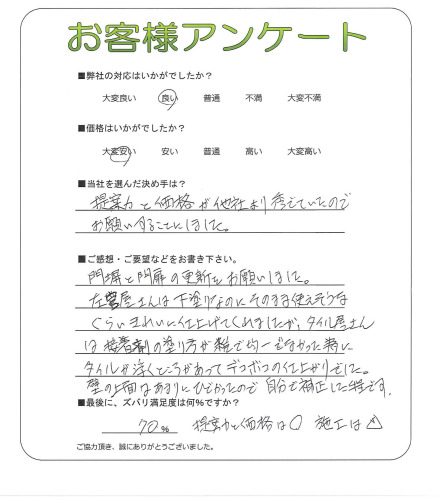 お客様アンケート
■弊社の対応はいかがでしたか？
大変良い 良い 普通 不満 大変不満
■価格はいかがでしたか？
大変安い 安い 普通 高い 大変高い
■当社を選んだ決め手は？
提案力と価格が他社より秀でていたので
お願いすることにしました。
■ご感想・ご要望などをお書き下さい。
門塀と門扉の更新をお願いしました。
左官屋さんは下塗りなのにそのまま使えそうな
くらいきれいに仕上げてくれましたが、タイル屋さん
は接着剤の塗り方が雑で均一でなかった為に
タイルが浮くところがあってデコボコの仕上がりでした。
壁の上面はあまりにひどかったので自分で補正した程です。
■最後に、ズバリ満足度は何％ですか？
70％ 提案力と価格は○ 施工は△
ご協力頂き、誠にありがとうございました。